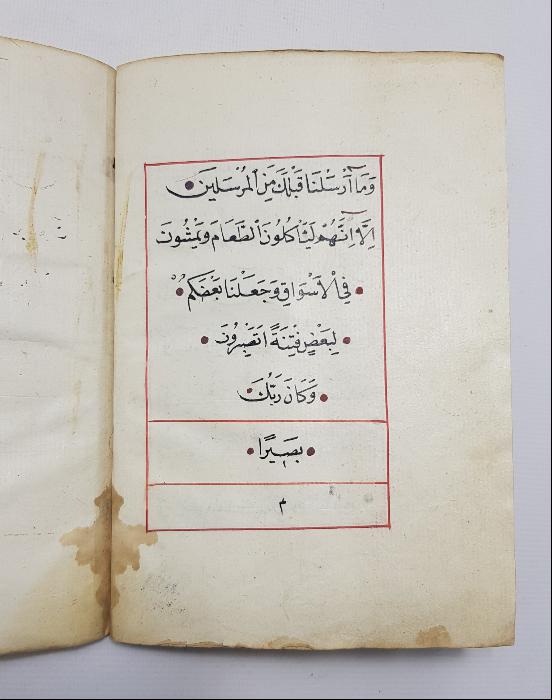 وَمَآ أَرْسَلْنَا قَبْلَكَ مِنَ الْمُرْسَلِينَ
اِلَّآ اِنَّهُمْ لَيَأْكُلُونَ الطَّعَامَ وَيَمْشُونَ
فِي الْاَسْوَاقِ وَجَعَلْنَا بَعْضَكُمْ
لِبَعْضٍ فِتْنَةً اَتَصْبِرُونَ
وَكَانَ رَبُّكَ
بَصِيرًا
م